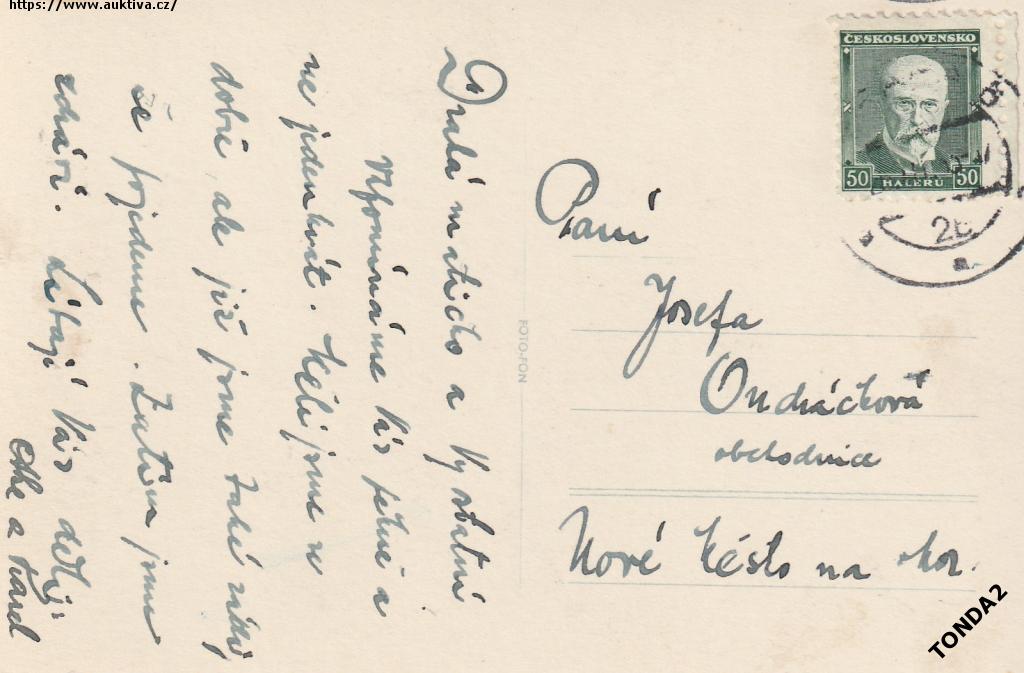 https://www.auktiva.cz/
ČESKOSLOVENSKO
50 HALÉŘŮ 50
Drahá matičko a Vy ostatní
Vzpomínáme Vás pěkně a
ne jedenkrát. Měli jsme se
dobře, ale již jsme také rádi,
že pojedeme. Zatím jsme
zdrávi. Líbají Vás
a Karel
FOTO-FON
Paní
Josefa
Ondráčková
obchodnice
Nové Město na Mor.
TONDA2